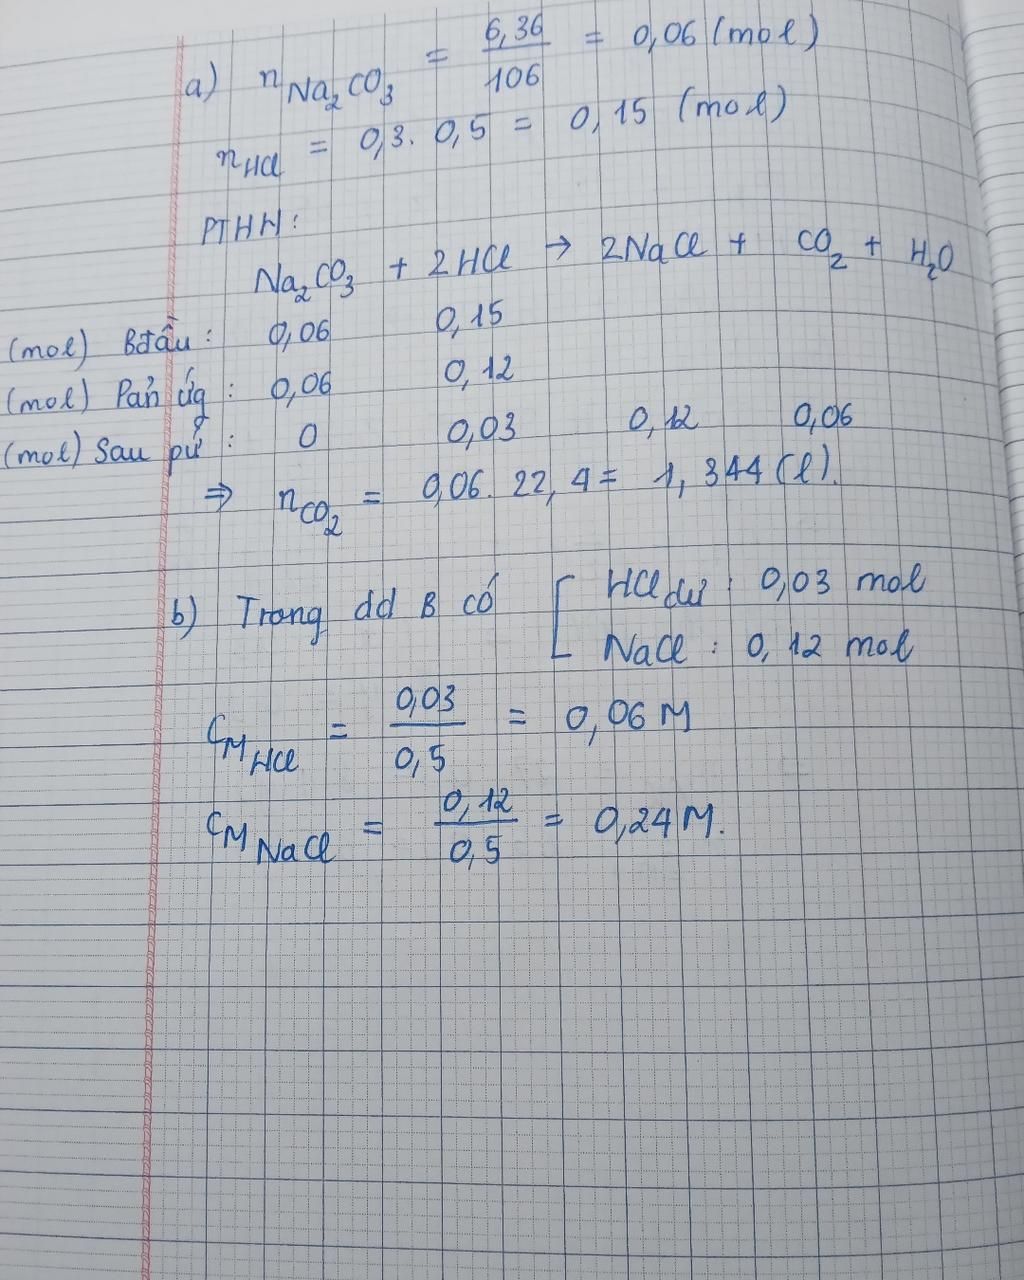 a) n Na₂CO₃ = 6,36/106 = 0,06 (mol)
n HCl = 0,3. 0,5 = 0,15 (mol)
PTHH:
Na₂CO₃ + 2HCl → 2NaCl + CO₂ + H₂O
(mol) Bđầu: 0,06 0,15
(mol) Pản ứg: 0,06 0,12
(mol) Sau pứ: 0 0,03 0,12 0,06
⇒ n CO₂ = 0,06. 22,4 = 1,344 (l).
b) Trong dd B có [ HCl dư: 0,03 mol
NaCl: 0,12 mol
C M HCl = 0,03/0,5 = 0,06 M
C M NaCl = 0,12/0,5 = 0,24 M.